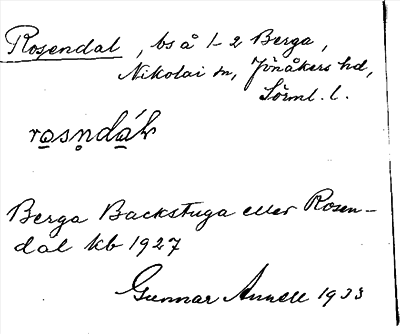 Rosendal, bs å 1-2 Berga,
Nikolai sn, Jönåkers hd,
Sörml. l.
Berga Backstuga eller Rosen-
dal kb 1927
Gunnar 1933